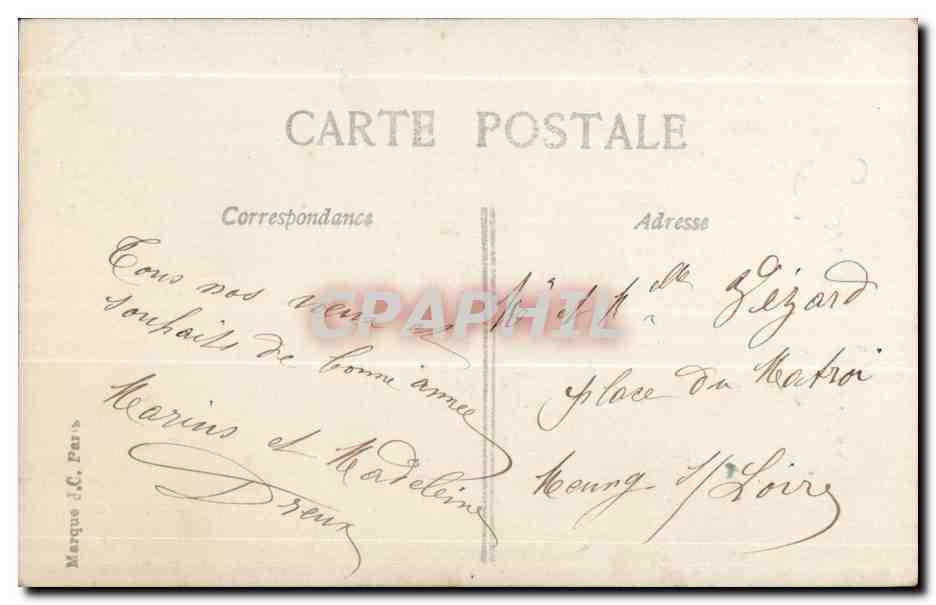 CARTE POSTALE
Correspondance
Tous nos vœux et
souhaits de bonne année
Marius et Madeleine
Dreux
Adresse
Mr et Melle
place du Matroi
Meung s/Loire
Marque J.C. Paris
CPAPHIL